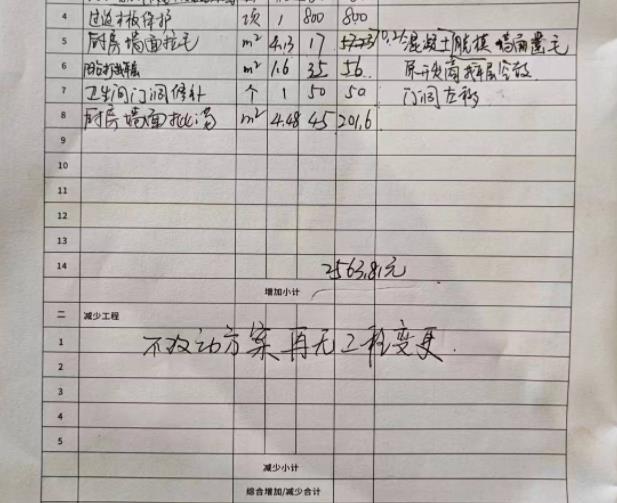 4 过道木板保护 项 1 800 800
5 厨房墙面拉毛 m² 4.13 17 混凝土脱模 墙面凿毛
6 m² 1.6 35 56
7 卫生间门洞修补 个 1 50 50 门洞左移
8 厨房墙面批 m² 4.48 45 201.6
9
10
11
12
13
14 2563.81元
增加小计
二 减少工程
1 不改动方案 再无工程变更.
2
3
4
5
减少小计
综合增加/减少合计